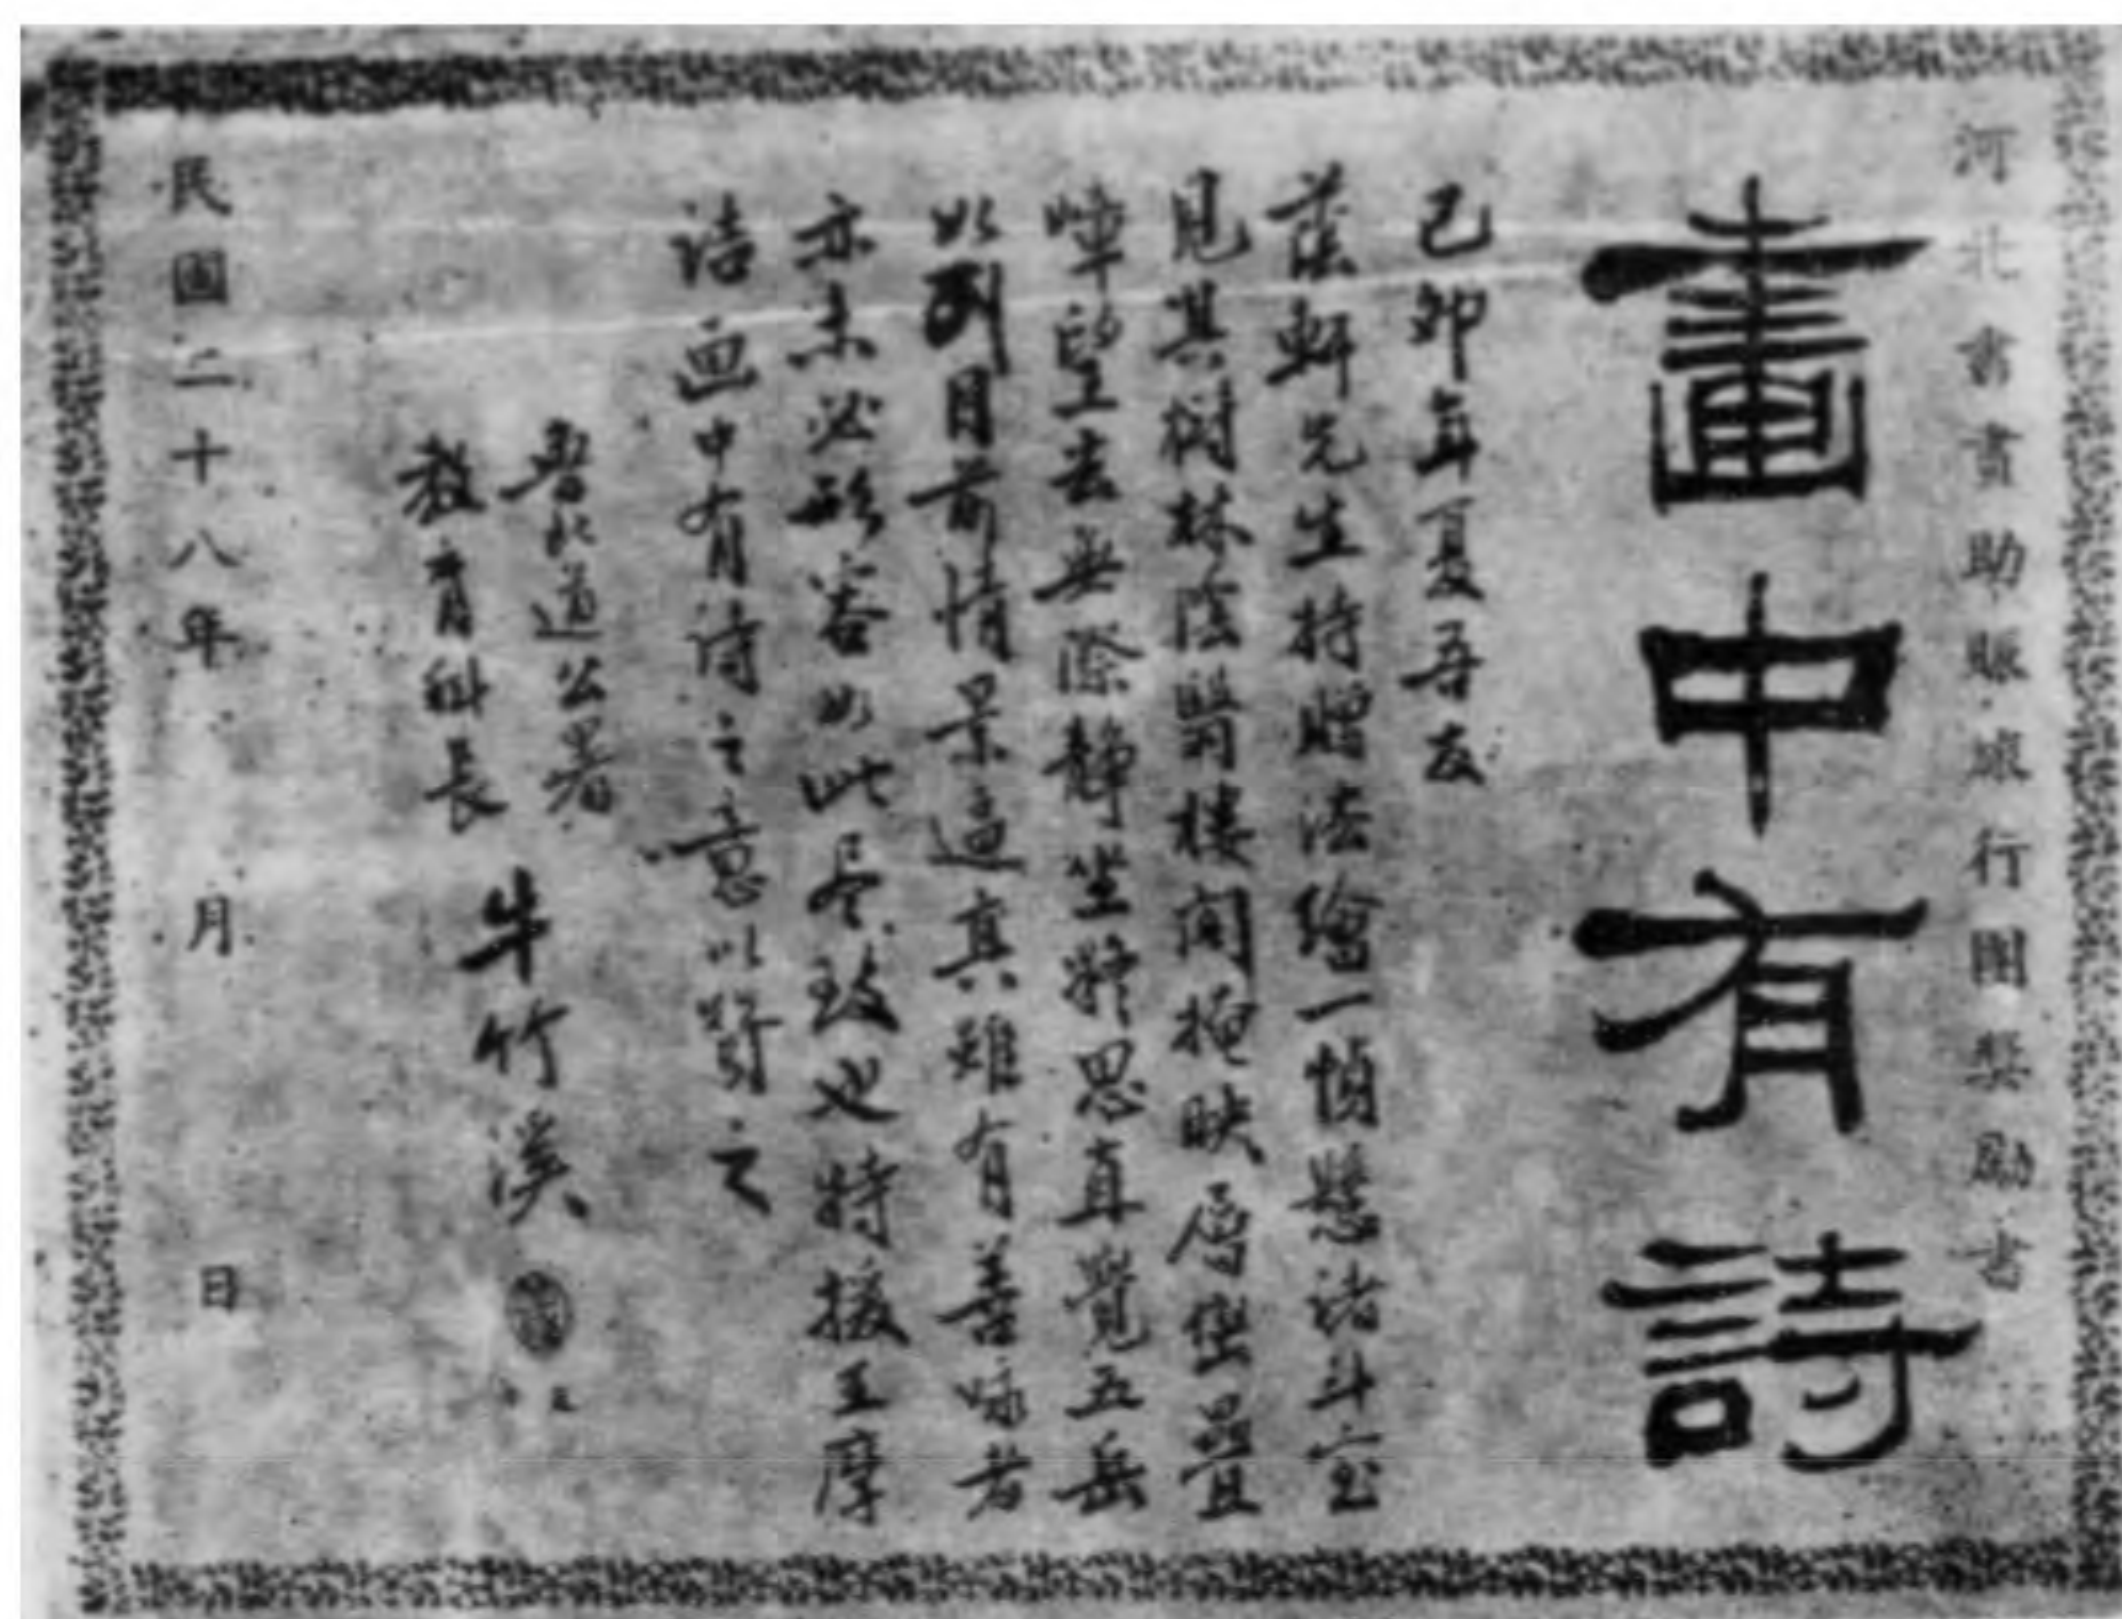 河北書畫助賑旅行團獎勵書
畫中有詩
己卯年夏吾友
蔭軒先生持贈法繪一幀懸諸斗室
見其樹林陰翳樓閣掩映層巒疊
嶂望去無際靜坐凝思直覺五岳
如列目前情景逼真雖有善咏者
亦未必形容如此尽致也特援王摩
詰画中有诗之意以贊之
魯北道公署
教育科長
牛竹溪
民國二十八年 月 日